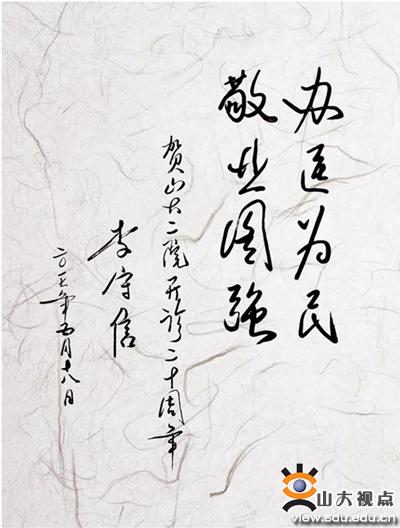 办医为民
敬业图强
贺山大二院开诊二十周年
李守信
二〇一七年五月十八日
山大视点
view.sdu.edu.cn